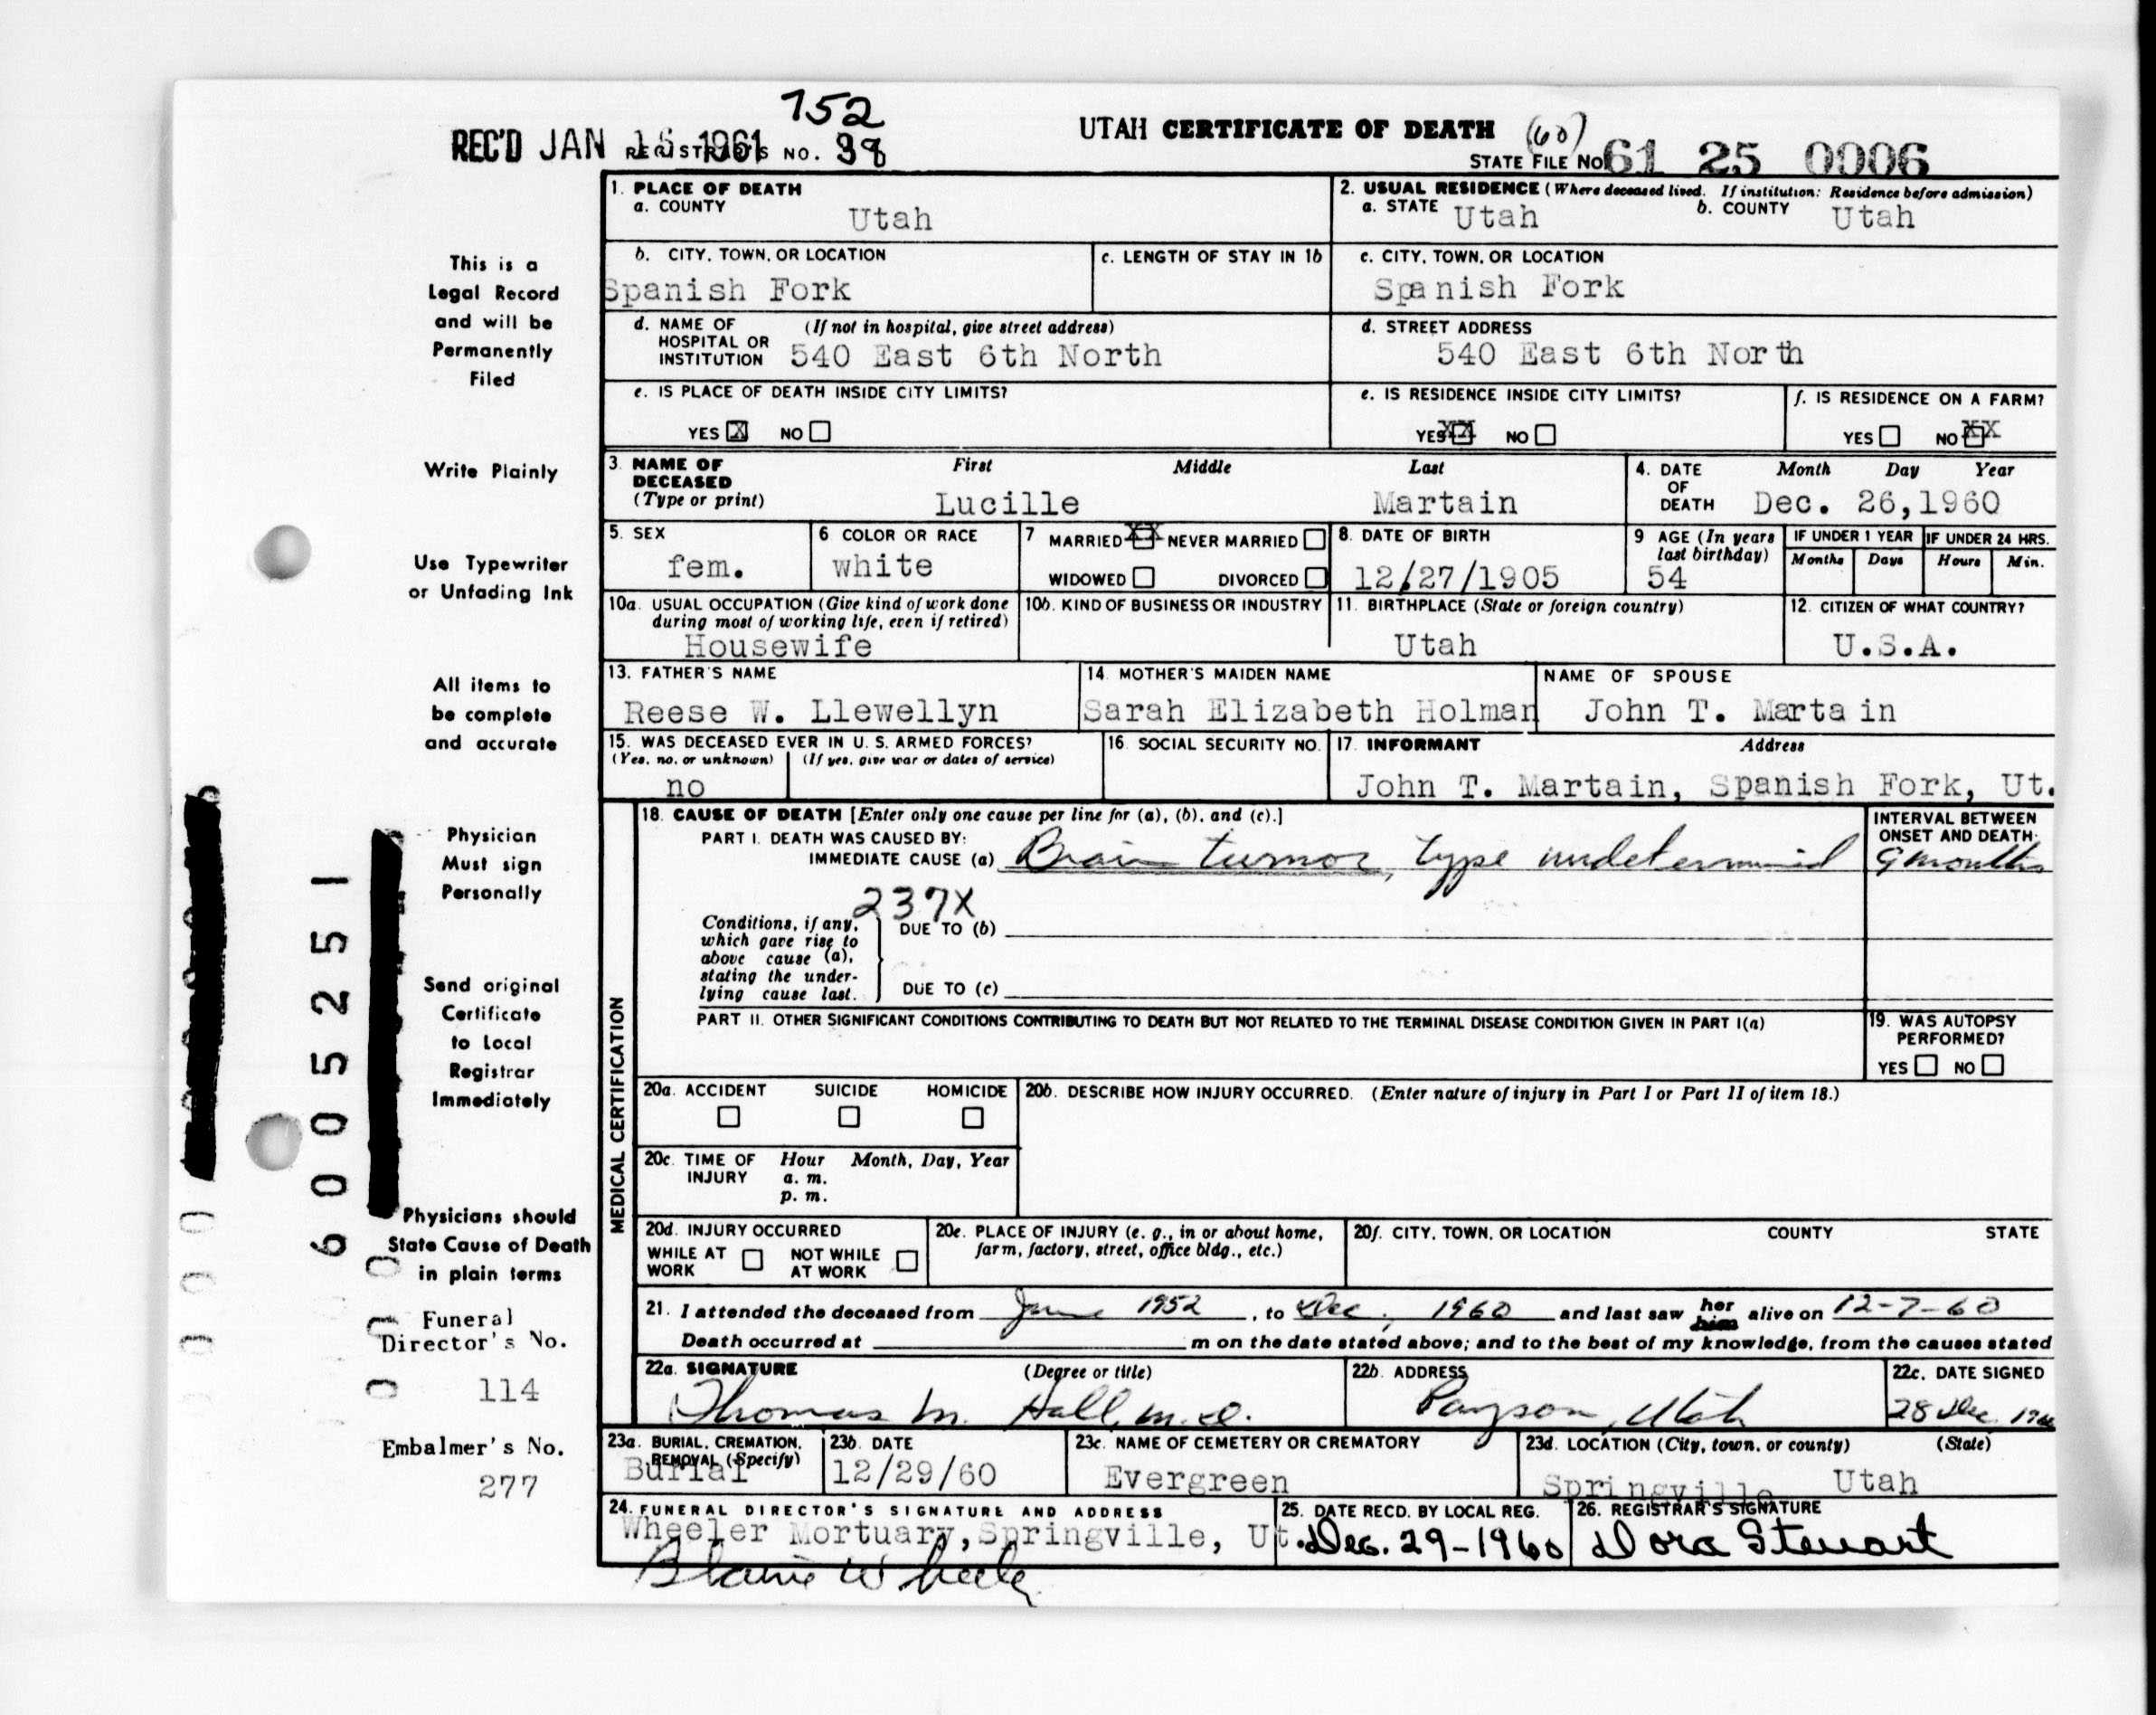 752
REC'D JAN 16 1961 REGISTRAR'S NO. 38
UTAH CERTIFICATE OF DEATH (60)
STATE FILE NO. 61 25 0006
1. PLACE OF DEATH
a. COUNTY Utah
2. USUAL RESIDENCE (Where deceased lived. If institution: Residence before admission)
a. STATE Utah b. COUNTY Utah
b. CITY, TOWN, OR LOCATION
Spanish Fork
c. LENGTH OF STAY IN 1b
c. CITY, TOWN, OR LOCATION
Spanish Fork
d. NAME OF HOSPITAL OR INSTITUTION (If not in hospital, give street address)
540 East 6th North
d. STREET ADDRESS
540 East 6th North
e. IS PLACE OF DEATH INSIDE CITY LIMITS?
YES X NO
e. IS RESIDENCE INSIDE CITY LIMITS?
YES XX NO
f. IS RESIDENCE ON A FARM?
YES NO XX
3. NAME OF DECEASED (Type or print)
First Middle Last
Lucille Martain
4. DATE OF DEATH Month Day Year
Dec. 26,1960
5. SEX
fem.
6 COLOR OR RACE
white
7 MARRIED XX NEVER MARRIED
WIDOWED DIVORCED
8. DATE OF BIRTH
12/27/1905
9 AGE (In years last birthday)
54
IF UNDER 1 YEAR
Months Days
IF UNDER 24 HRS.
Hours Min.
10a. USUAL OCCUPATION (Give kind of work done during most of working life, even if retired)
Housewife
10b. KIND OF BUSINESS OR INDUSTRY
11. BIRTHPLACE (State or foreign country)
Utah
12. CITIZEN OF WHAT COUNTRY?
U.S.A.
13. FATHER'S NAME
Reese W. Llewellyn
14. MOTHER'S MAIDEN NAME
Sarah Elizabeth Holman
NAME OF SPOUSE
John T. Martain
15. WAS DECEASED EVER IN U. S. ARMED FORCES?
(Yes, no, or unknown) (If yes, give war or dates of service)
no
16. SOCIAL SECURITY NO.
17. INFORMANT Address
John T. Martain, Spanish Fork, Ut.
MEDICAL CERTIFICATION
18. CAUSE OF DEATH [Enter only one cause per line for (a), (b), and (c).]
PART I. DEATH WAS CAUSED BY:
IMMEDIATE CAUSE (a) Brain tumor, type undetermined
INTERVAL BETWEEN ONSET AND DEATH
9 months
237X
Conditions, if any, which gave rise to above cause (a), stating the underlying cause last.
DUE TO (b)
DUE TO (c)
PART II. OTHER SIGNIFICANT CONDITIONS CONTRIBUTING TO DEATH BUT NOT RELATED TO THE TERMINAL DISEASE CONDITION GIVEN IN PART I(a)
19. WAS AUTOPSY PERFORMED?
YES NO
20a. ACCIDENT SUICIDE HOMICIDE
20b. DESCRIBE HOW INJURY OCCURRED. (Enter nature of injury in Part I or Part II of item 18.)
20c. TIME OF INJURY Hour Month, Day, Year
a. m.
p. m.
20d. INJURY OCCURRED
WHILE AT WORK NOT WHILE AT WORK
20e. PLACE OF INJURY (e. g., in or about home, farm, factory, street, office bldg., etc.)
20f. CITY, TOWN, OR LOCATION COUNTY STATE
21. I attended the deceased from June 1952, to Dec, 1960 and last saw her him alive on 12-7-60
Death occurred at m on the date stated above; and to the best of my knowledge, from the causes stated
22a. SIGNATURE (Degree or title)
Thomas M. Hall, M.D.
22b. ADDRESS
Payson, Utah
22c. DATE SIGNED
28 Dec. 1960
23a. BURIAL, CREMATION, REMOVAL (Specify)
Burial
23b. DATE
12/29/60
23c. NAME OF CEMETERY OR CREMATORY
Evergreen
23d. LOCATION (City, town, or county) (State)
Springville Utah
24. FUNERAL DIRECTOR'S SIGNATURE AND ADDRESS
Wheeler Mortuary, Springville, Ut.
Blaine Wheeler
25. DATE RECD. BY LOCAL REG.
Dec. 29-1960
26. REGISTRAR'S SIGNATURE
Dora Stewart
This is a
Legal Record
and will be
Permanently
Filed
Write Plainly
Use Typewriter
or Unfading Ink
All items to
be complete
and accurate
Physician
Must sign
Personally
Send original
Certificate
to Local
Registrar
Immediately
Physicians should
State Cause of Death
in plain terms
Funeral
Director's No.
114
Embalmer's No.
277
6005251